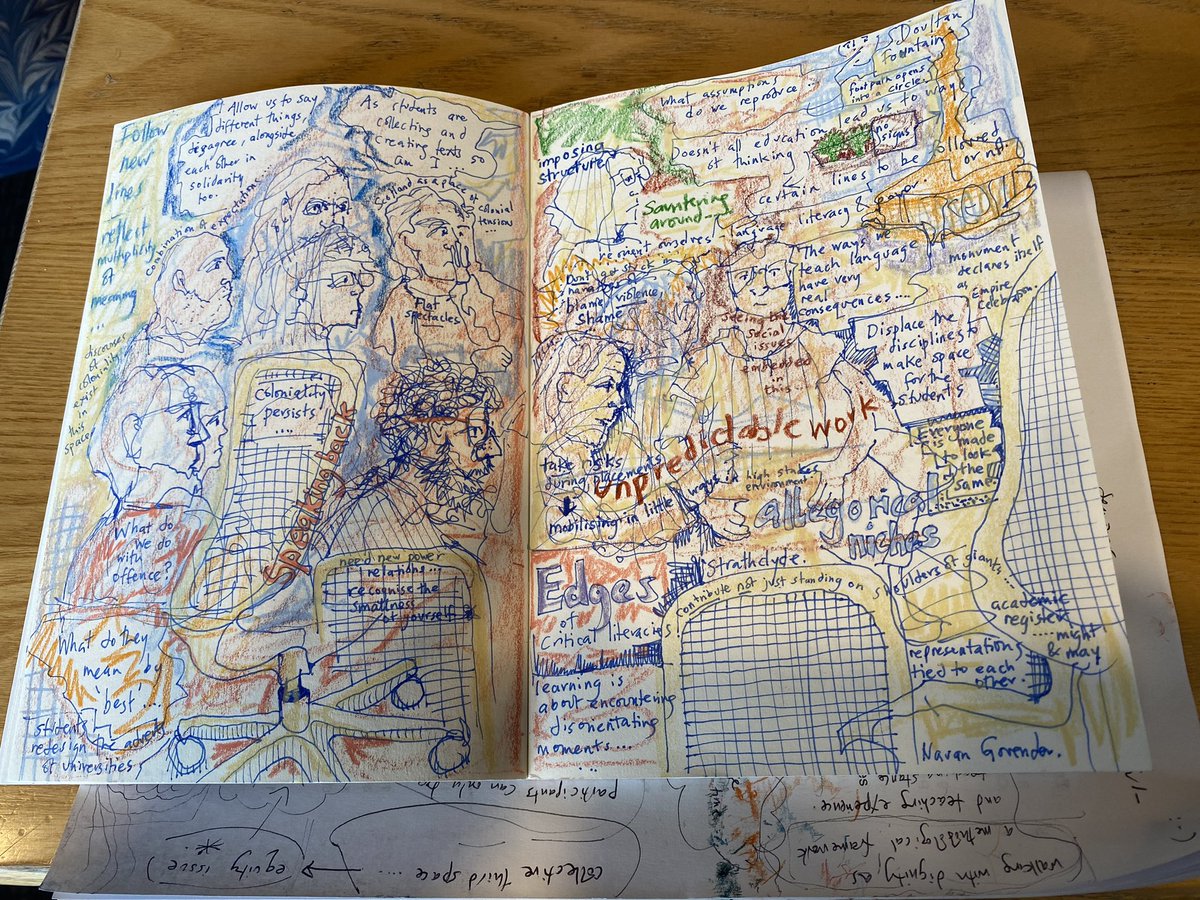 Follow
new
lines
reflect
multiplicity
of
meaning
...
discourses
of
coloniality
exist
in
this
space
Allow us to say
different things,
disagree, alongside
each other in
solidarity
too.
As students
are
collecting and
creating texts so
am I
Scotland as a place of
colonial
tension...
Combination of expectations
Flat
spectacles
coloniality
persists!
....
Speaking back
What do
we do
with
offence?
need new power
relations...
recognise the
smallness
of yourself
What do they
mean by
'best'....
students
redesign the adverts
of universities
Doultan
Fountain
footpath opens
into a circle..
What assumptions
do we reproduce...
Doesn't all education lead us to ways
of thinking
no
signs
certain lines to be followed
or not
imposing
structure!
Sauntering
around...
language literacy & power
Don't get stuck
blame, violence,
shame
The ways we
teach language
have very
real
consequences....
monument
declares itself
as
Empire
Celebration
seeing big
social
issues
embedded
in
this
Displace the
disciplines to
make space
for the
students
Everyone
is made
to look
the
same
take risks
during placements
unpredictable work
mobilising in little ways in
high stakes
environment
allegorical
niches
Edges
of
Critical literacies!
Strathclyde.
Contribute not just standing on shoulders of giants...
academic
register
....might
& may
learning is
about encountering
disorientating
moments...
representations
tied to each
other.
Navan Govender.
participants can only be
collective third space ....
equity issue
and teaching experience.
a methodological framework
walking with dignity, as